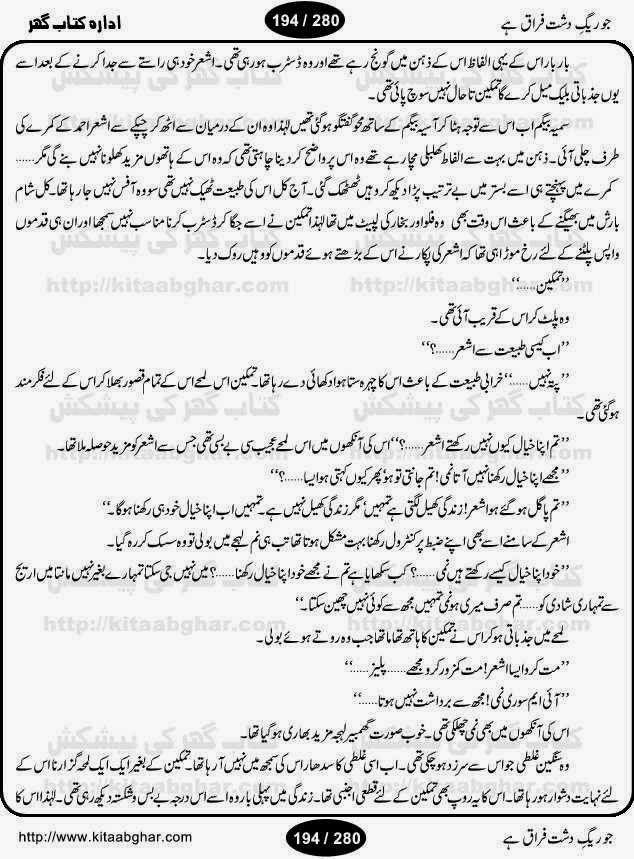 جو ریگِ دشتِ فراق ہے
194 / 280
ادارہ کتاب گھر
بار بار اس کے یہی الفاظ اس کے ذہن میں گونج رہے تھے اور وہ ڈسٹرب ہو رہی تھی۔ اشعر خود ہی راستے سے جدا کرنے کے بعد اسے
یوں جذباتی بلیک میل کرے گا تمکین تا حال نہیں سوچ پائی تھی۔
سمیہ بیگم اب اس سے توجہ ہٹا کر آسیہ بیگم کے ساتھ محو گفتگو ہو گئی تھیں لہٰذا وہ ان کے درمیان سے اٹھ کر چپکے سے اشعر احمد کے کمرے کی
طرف چلی آئی۔ ذہن میں بہت سے الفاظ کھلبلی مچا رہے تھے وہ اس پر واضح کر دینا چاہتی تھی کہ وہ اس کے ہاتھوں مزید کھلونا نہیں بنے گی مگر......
کمرے میں پہنچتے ہی اسے بستر میں بے ترتیب پڑا دیکھ کر وہیں ٹھٹھک گئی۔ آج کل اس کی طبیعت ٹھیک نہیں تھی سو وہ آفس نہیں جا رہا تھا۔ کل شام
بارش میں بھیگنے کے باعث اس وقت بھی وہ فلو اور بخار کی لپیٹ میں تھا لہٰذا تمکین نے اسے جگا کر ڈسٹرب کرنا مناسب نہیں سمجھا اور ان ہی قدموں
واپس پلٹنے کے لئے رخ موڑا ہی تھا کہ اشعر کی پکار نے اس کے بڑھتے ہوئے قدموں کو وہیں روک دیا۔
’’تمکین......‘‘
وہ پلٹ کر اس کے قریب آئی تھی۔
’’اب کیسی طبیعت ہے اشعر......؟‘‘
’’پتہ نہیں......‘‘ خرابی طبیعت کے باعث اس کا چہرہ ستا ہوا دکھائی دے رہا تھا۔ تمکین اس لمحے اس کے تمام قصور بھلا کر اس کے لئے فکر مند
ہو گئی تھی۔
’’تم اپنا خیال کیوں نہیں رکھتے اشعر......؟‘‘ اس کی آنکھوں میں اس لمحے عجیب سی بے بسی تھی جس سے اشعر کو مزید حوصلہ ملا تھا۔
’’مجھے اپنا خیال رکھنا نہیں آتا نمی! تم جانتی تو ہو‘ پھر کیوں کہتی ہو ایسا......؟‘‘
’’تم پاگل ہو گئے ہو اشعر! زندگی کھیل لگتی ہے تمہیں‘ مگر زندگی کھیل نہیں ہے۔ تمہیں اب اپنا خیال خود ہی رکھنا ہو گا۔‘‘
اشعر کے سامنے اسے بھی اپنے ضبط پر کنٹرول رکھنا بہت مشکل ہوتا تھا تب ہی نم لہجے میں بولی تو وہ سسک کر رہ گیا۔
’’خود اپنا خیال کیسے رکھتے ہیں نمی......؟ کب سکھایا ہے تم نے مجھے خود اپنا خیال رکھنا......؟ میں نہیں جی سکتا تمہارے بغیر نہیں مانتا میں اریج
سے تمہاری شادی کو...... تم صرف میری ہو نمی تمہیں مجھ سے کوئی نہیں چھین سکتا۔‘‘
لمحے میں جذباتی ہو کر اس نے تمکین کا ہاتھ تھاما تھا جب وہ روتے ہوئے بولی۔
’’مت کرو ایسا اشعر! مت کمزور کرو مجھے...... پلیز......‘‘
’’آئی ایم سوری نمی! مجھ سے برداشت نہیں ہوتا......‘‘
اس کی آنکھوں میں بھی نمی چھلکی تھی۔ خوب صورت گھمبیر لہجہ مزید بھاری ہو گیا تھا۔
وہ سنگین غلطی جو اس سے سرزد ہو چکی تھی۔ اب اسی غلطی کا سدھار اس کی سمجھ میں نہیں آ رہا تھا۔ تمکین کے بغیر ایک ایک لمحہ گزارنا اس کے
لئے نہایت دشوار ہو رہا تھا۔ اس کا یہ روپ بھی تمکین کے لئے قطعی اجنبی تھا۔ زندگی میں پہلی بار وہ اسے اس درجہ بے بس و شکستہ دیکھ رہی تھی۔ لہٰذا اس کا
کتاب گھر کی پیشکش
http://kitaabghar.com
http://www.kitaabghar.com
194 / 280
جو ریگِ دشتِ فراق ہے